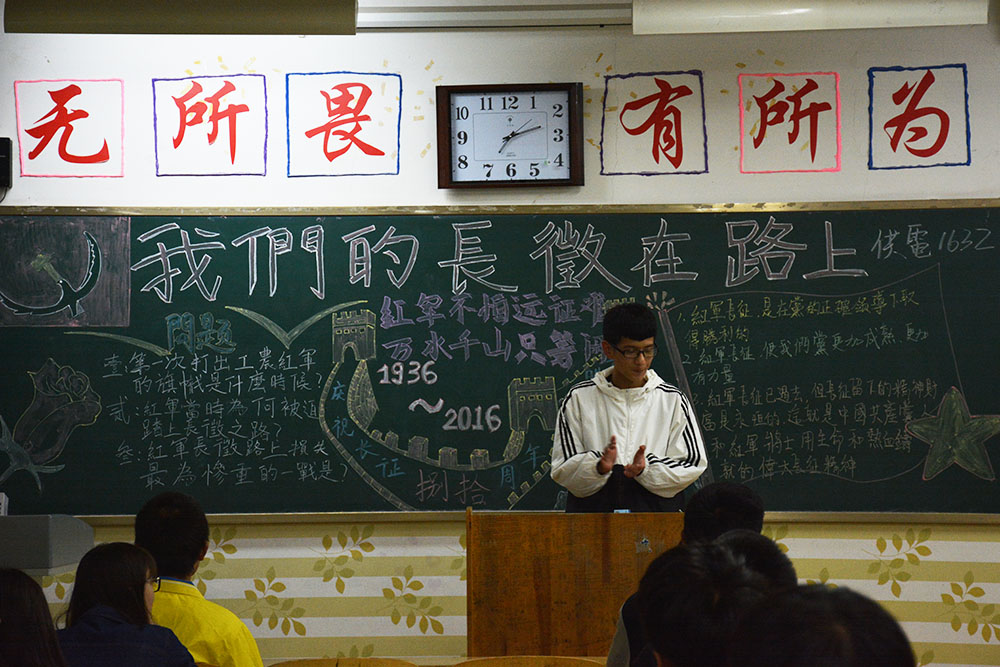 无所畏 有所为
11 12 1
10 2
9 3
8 4
7 6 5
我們的長徵在路上
供電1632
問題
壹:第一次打出工農紅軍
的旗幟是什麼時候?
貳:紅軍當時為何被迫
踏上長徵之路?
叁:紅軍長徵路上損失
最為慘重的一戰是?
紅軍不怕远征难
万水千山只等闲
1936
~2016
庆祝长征
捌拾
周年
1.紅軍長征,是在黨的正確領導下取
得勝利的
2.紅軍長征,使我們黨更加成熟,更加
有力量
紅軍長征已過去,但長征留下的精神財
富是永恒的,這就是中國共產黨
和紅軍將士用生命和熱血鑄
就的偉大長征精神